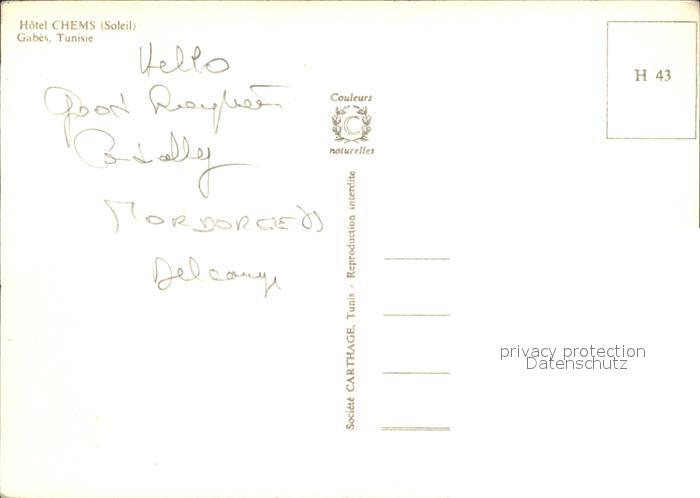 Hôtel CHEMS (Soleil)
Gabès, Tunisie
Hello
Good
Cordially
H 43
Couleurs
C
naturelles
Société CARTHAGE, Tunis - Reproduction interdite
privacy protection
Datenschutz